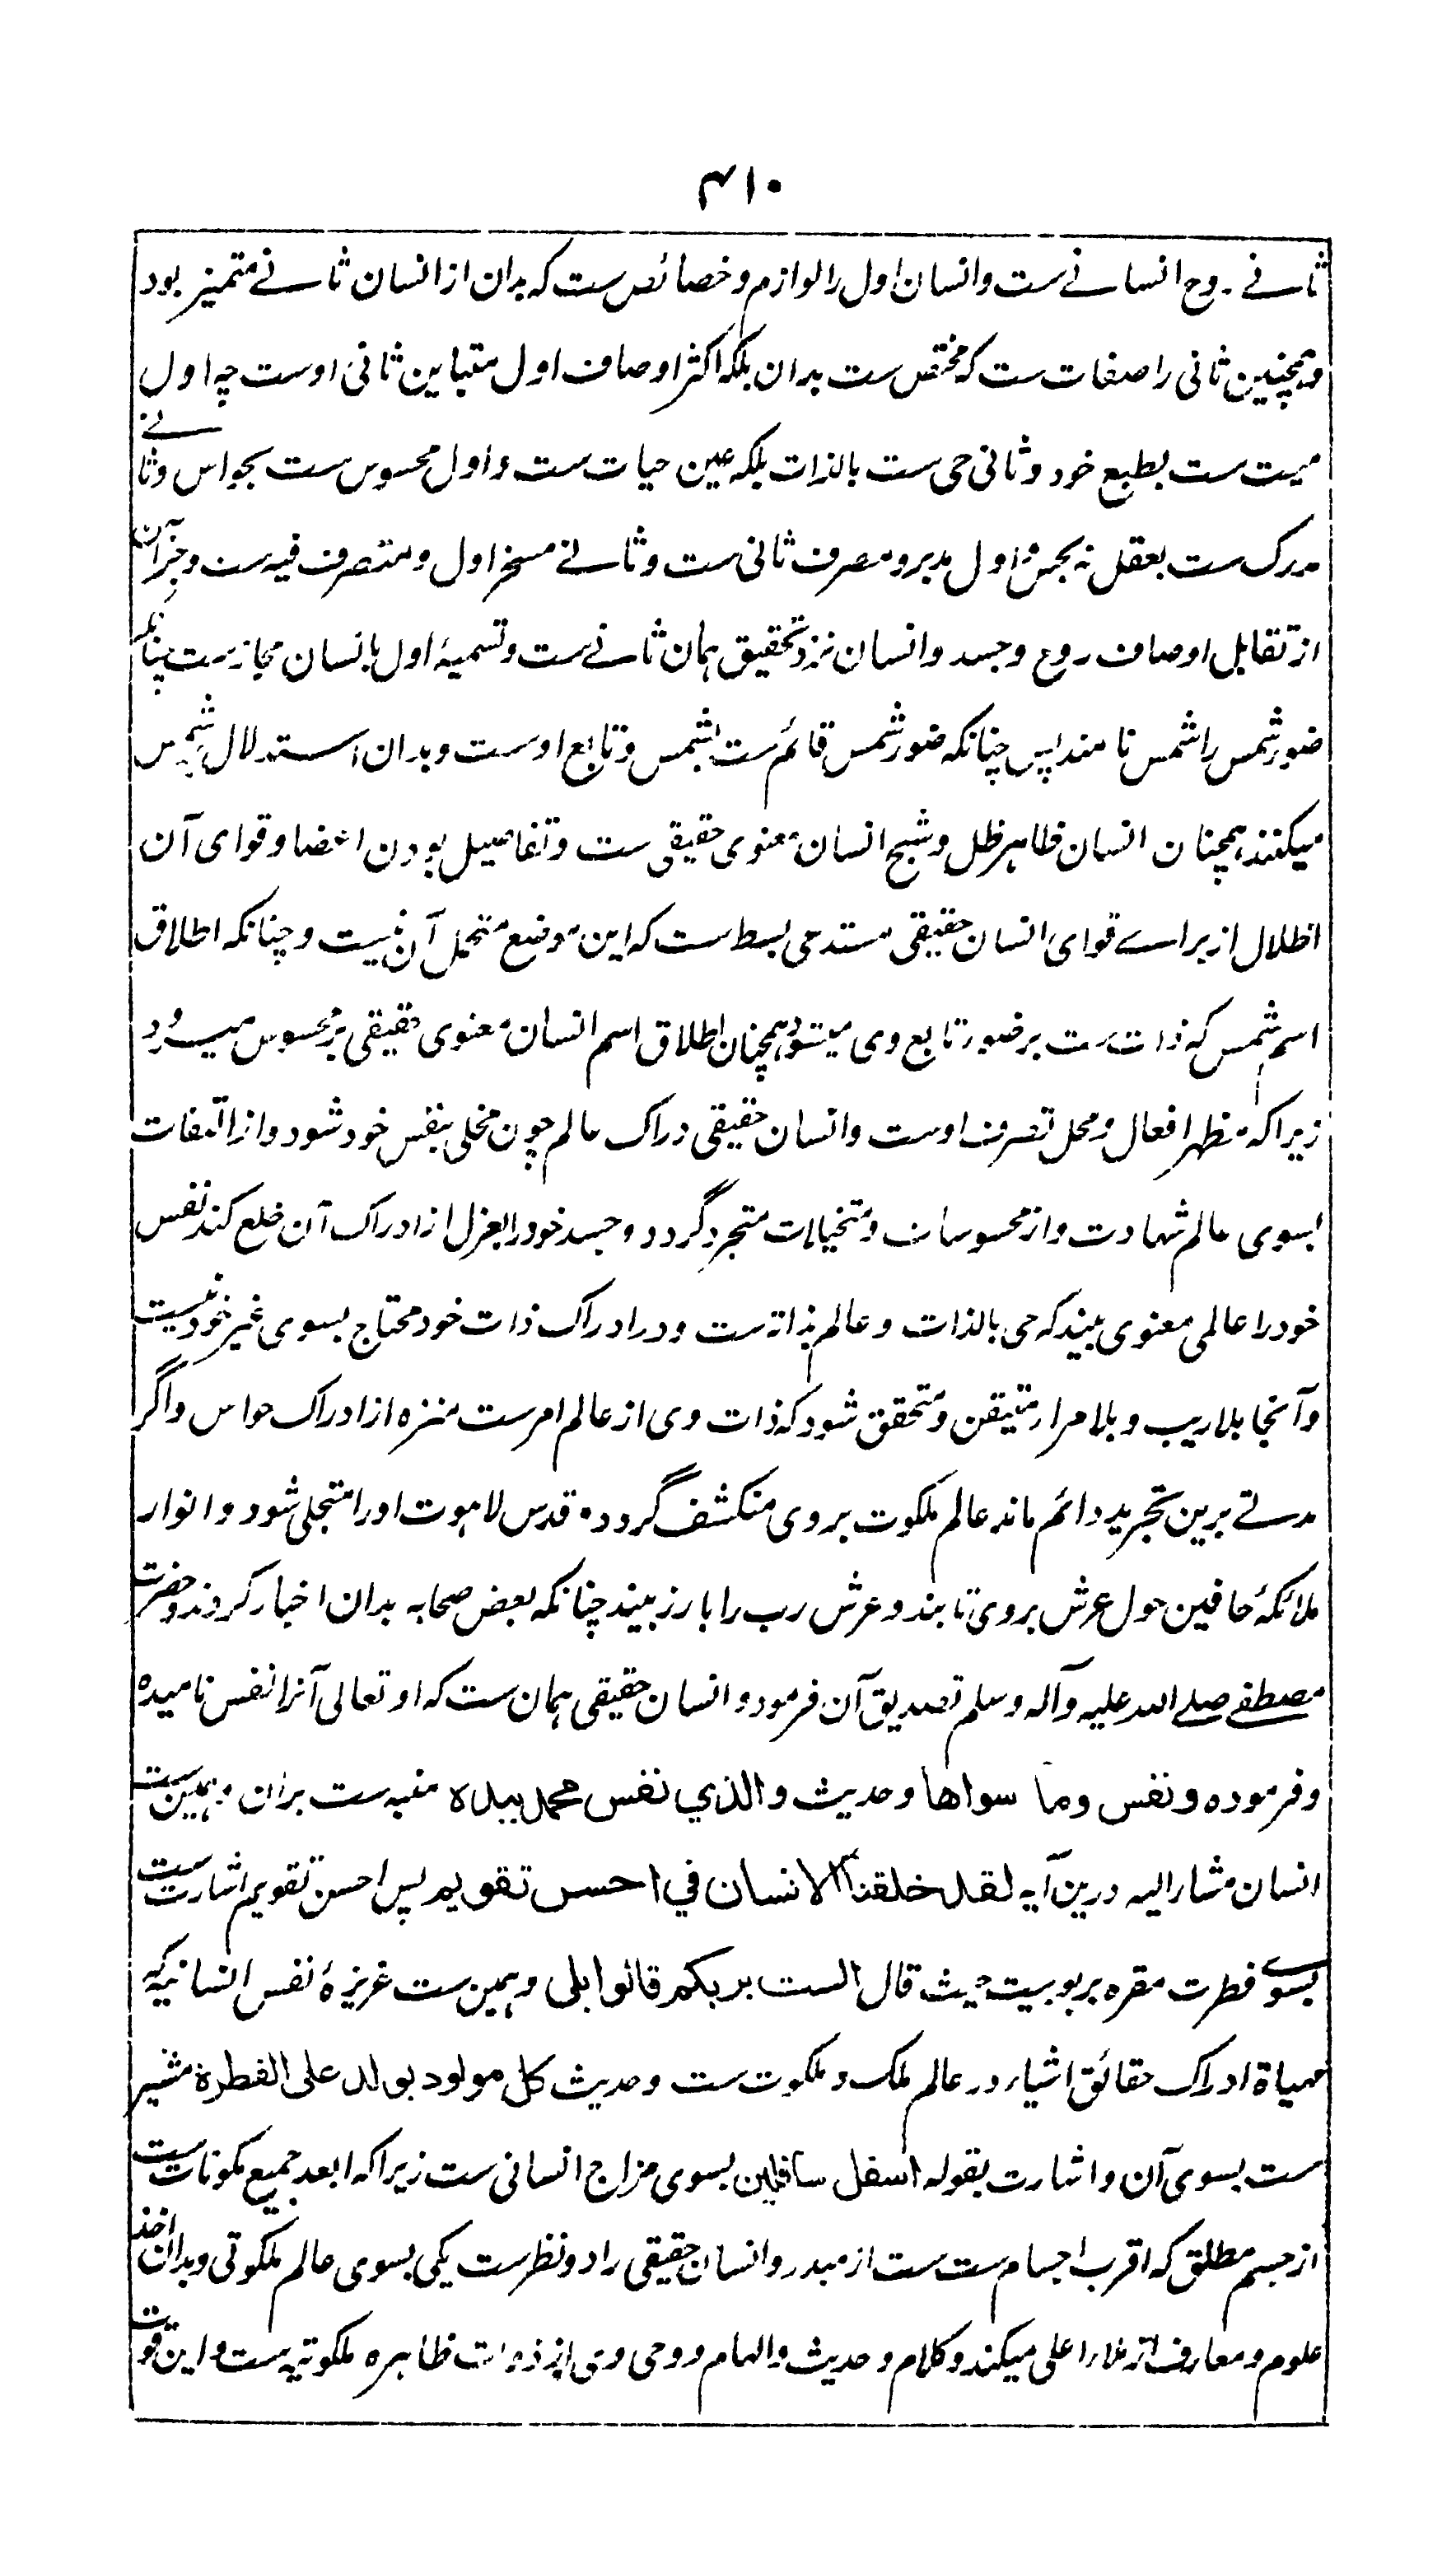 ۴۱۰
ثانے روح انسانے ست و انسان اول را لوازم و خصائص ست که بدان از انسان ثانے متمیز بود
و ہمچنین ثانی را صفات ست که مختص ست بدان بلکه اکثر اوصاف اول متباین ثانی اوست چه اول
میت ست بطبع خود و ثانی حی ست بالذات بلکه عین حیات ست و اول محسوس ست بحواس و ثانے
مدرک ست بعقل نه بحس و اول مدبر و مصرف ثانی ست و ثانے مسخر اول و متصرف فیه ست و جز آن
از تقابل اوصاف روح و جسد و انسان نزد تحقیق ہمان ثانے ست و تسمیۂ اول بانسان مجاز ست چنانکه
ضوء شمس را شمس نامند پس چنانکه ضوء شمس قائم ست بشمس و تابع اوست و بدان استدلال بر شمس
میکنند ہمچنان انسان ظاہر ظل و شبح انسان معنوی حقیقی ست و تفاصیل بودن اعضا و قوای آن
اظلال از براے قوای انسان حقیقی مستدعی بسط ست که این موضع متحمل آن نیست و چنانکه اطلاق
اسم شمس که ذات ست بر ضوء تابع وی میشود ہمچنان اطلاق اسم انسان معنوی حقیقی بر محسوس میرود
زیرا که مظہر افعال و محل تصرف اوست و انسان حقیقی دراک عالم چون مخلی بنفس خود شود و از التفات
بسوی عالم شہادت و از محسوسات و متخیلات متجرد گردد و جسد خود را بعزل از ادراک آن خلع کند نفس
خود را عالمی معنوی بیند که حی بالذات و عالم بذاته ست و در ادراک ذات خود محتاج بسوی غیر خود نیست
و آنجا بلاریب و بلامراء متیقن و متحقق شود که ذات وی از عالم امر ست منزه از ادراک حواس و اگر
مدتے برین تجرید دائم ماند عالم ملکوت بروی منکشف گردد و قدس لاہوت اورا متجلی شود و انوار
ملائکۂ حافین حول عرش بروی تابند و عرش رب را بارز بیند چنانکه بعض صحابه بدان اخبار کردند و حضرت
مصطفے صلے الله علیه وآله وسلم تصدیق آن فرمود و انسان حقیقی ہمان ست که او تعالی آنرا نفس نامیده
و فرموده و نفس وما سواها و حدیث والذي نفس محمد بیده منبه ست بران و ہمین ست
انسان مشار الیه درین آیه لقد خلقنا الانسان في احسن تقویم پس احسن تقویم اشارت ست
بسوے فطرت مقره بربوبیت حیث قال الست بربکم قالوا بلی و ہمین ست غریزۂ نفس انسانیه که
مهیاة ادراک حقائق اشیاء در عالم ملک و ملکوت ست و حدیث کل مولود یولد علی الفطرة مشیر
ست بسوی آن و اشارت بقوله اسفل سافلین بسوی مزاج انسانی ست زیرا که ابعد جمیع مکونات ست
از جسم مطلق که اقرب اجسام ست ست از مبدء و انسان حقیقی را دو نظر ست یکی بسوی عالم ملکوتی و بدان اخذ
علوم و معارف از ملاء اعلی میکند و کلام و حدیث و الہام و وحی وی از ذوات ظاہره ملکوتیه ست و این قوت